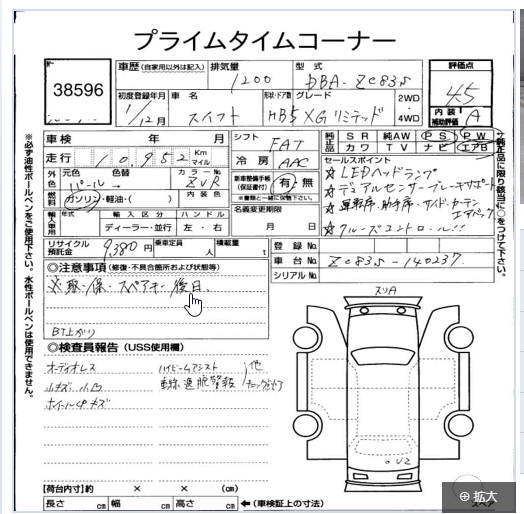 プライムタイムコーナー
38596
車歴(自家用以外は記入)
排気量
1200
型式
DBA-ZC83S
評価点
4.5
初度登録年月
1/12月
車名
スイフト
形状・ドア数
グレード
HB5 XGリミテッド
2WD・4WD
内装補助評価
A
車検 年 月
シフト
FAT
純正品
SR 純AW PS PW
カワ TV ナビ エアB
走行 10,952 Km マイル
冷房
AAC
セールスポイント
☆LEDヘッドランプ
☆デュアルセンサーブレーキサポート
☆運転席・助手席・サイド・カーテンエアバッグ
☆クルーズコントロール!!
外装色
元色 色替
パール→
カラーNo.
ZVR
内装色
新車整備手帳(保証書付) 有・無
※書類と一緒に保管下さい。
燃料
ガソリン・軽油・( )
名義変更期限
月 日
輸入車用
年式 輸入区分 ハンドル
ディーラー・並行 左・右
リサイクル預託金 9,380円
乗車定員 人
積載量 t
登録No.
車台No. ZC83S-140237
シリアルNo.
◎注意事項(修復・不具合箇所および状態等)
※取・保・スペアキー後日
BT上がり
◎検査員報告(USS使用欄)
オーディオレス
小キズ 小凹
ホイールキズ
ハイビームアシスト
車線逸脱警報
他
スリA
U2
【荷台内寸】約 × × (cm)
長さ cm 幅 cm 高さ cm ←(車検証上の寸法)
※必ず油性ボールペンをご使用下さい。水性ボールペンは使用できません。
純正品に限り該当に○をつけて下さい。
拡大